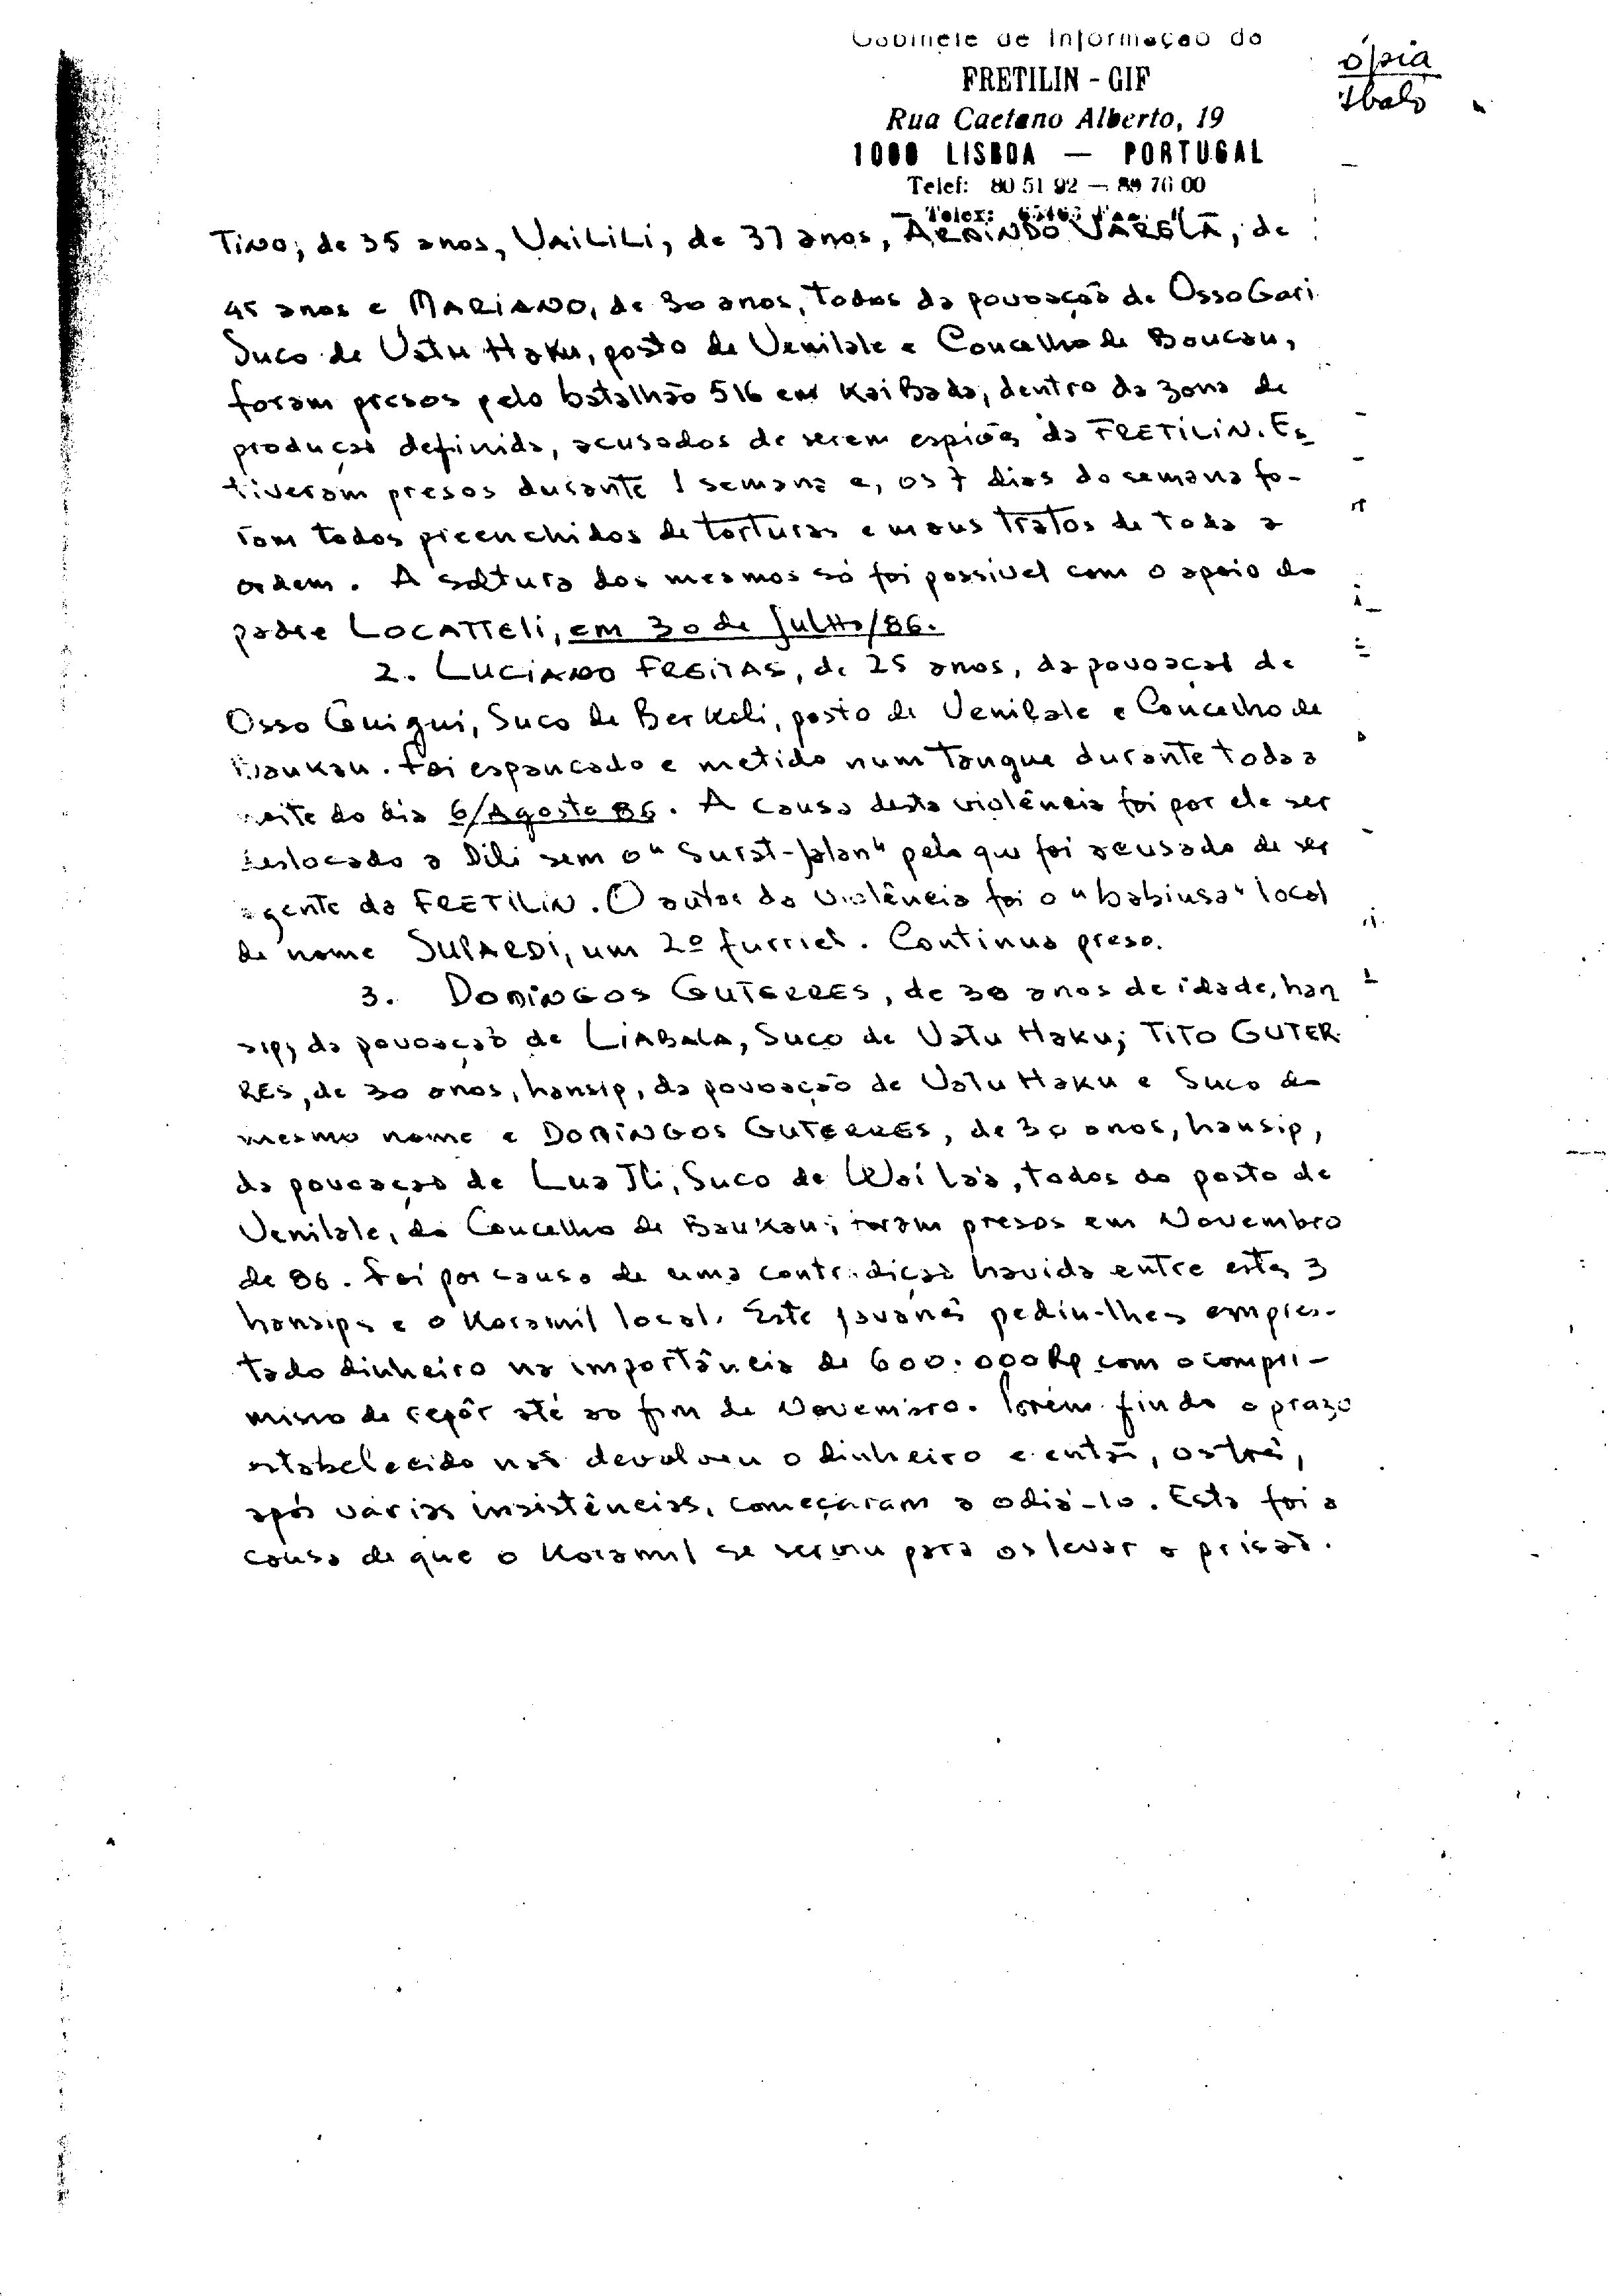 Gabinete de Informação da
FRETILIN - GIF
Rua Caetano Alberto, 19
1000 LISBOA — PORTUGAL
Telef: 80 51 92 — 89 76 00
Telex:
ópia
Tino, de 35 anos, VAiLiLi, de 37 anos, ARMINDO VARELA, de
45 anos e MARIANO, de 30 anos, todos da povoação de Osso Gari
Suco de Uatu Haku, posto de Venilale e Concelho de Boucau,
foram presos pelo batalhão 516 em Kai Bada, dentro da zona de
produção definida, acusados de serem espiões da FRETILIN. Es
tiveram presos durante 1 semana e, os 7 dias da semana fo-
ram todos preenchidos de torturas e maus tratos de toda a
ordem. A soltura dos mesmos só foi possível com o apoio do
padre LOCATTELi, em 30 de Julho/86.
2. LUCIANO FREITAS, de 25 anos, da povoação de
Osso Guigui, Suco de Berkoli, posto de Venilale e Concelho de
Baukau. Foi espancado e metido num tanque durante toda a
noite do dia 6/Agosto 86. A causa desta violência foi por ele ser
deslocado a Dili sem o "Surat-Jalan" pelo que foi acusado de ser
agente da FRETILIN. O autor da violência foi o "babinsa" local
de nome SUPARDI, um 2º furriel. Continua preso.
3. DOMINGOS GUTERRES, de 30 anos de idade, han
sip, da povoação de LIABALA, Suco de Uatu Haku; TITO GUTER-
RES, de 30 anos, hansip, da povoação de Uatu Haku e Suco do
mesmo nome e DOMINGOS GUTERRES, de 30 anos, hansip,
da povoação de Lua Ili, Suco de Uai Laa, todos do posto de
Venilale, do Concelho de Baukau; foram presos em Novembro
de 86. Foi por causa de uma contradição havida entre estes 3
hansips e o Koramil local. Este javanês pediu-lhes empres-
tado dinheiro na importância de 600.000 Rp com o compro-
misso de repôr até ao fim de Novembro. Porém findo o prazo
estabelecido não devolveu o dinheiro e então, os três,
após várias insistências, começaram a odiá-lo. Esta foi a
causa de que o Koramil se serviu para os levar a prisão.